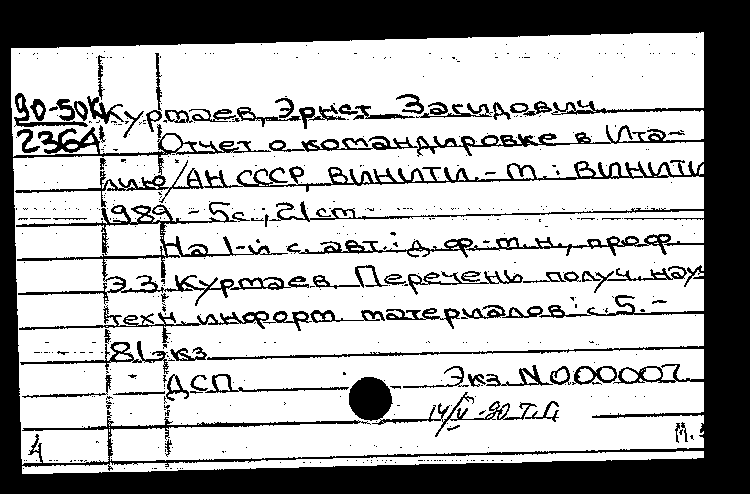 90-50К Куртаев, Эрнст Загидович.
2364 Отчет о командировке в Ита-
лию / АН СССР, ВИНИТИ. - М. : ВИНИТИ
1989. - 5с. ; 21 см. -
На 1-й с. авт.: д. ф.-м. н., проф.
Э.З. Куртаев. Перечень получ. науч
техн. информ. материалов: с. 5. -
81 экз.
ДСП. Экз. N 000007.
14/V -90 Т.П.
4 М.